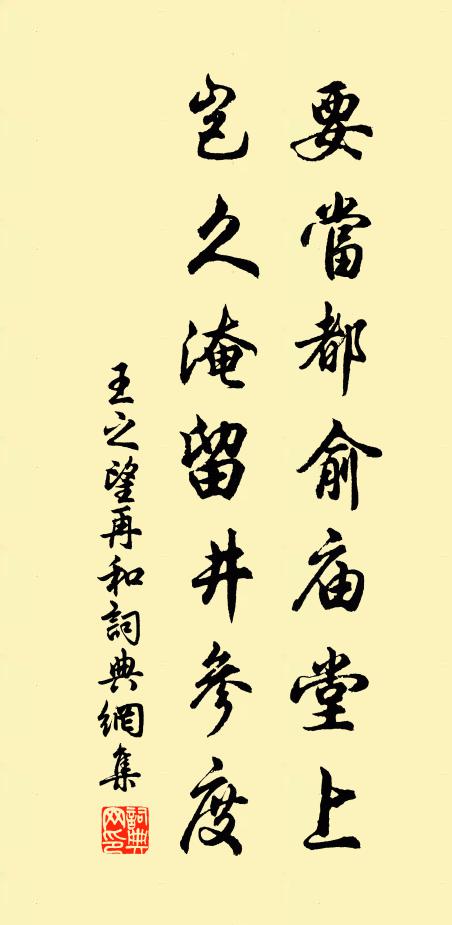 要當都俞庙堂上
岂久淹留井參度
王之望再和詞典網集
詞典网印